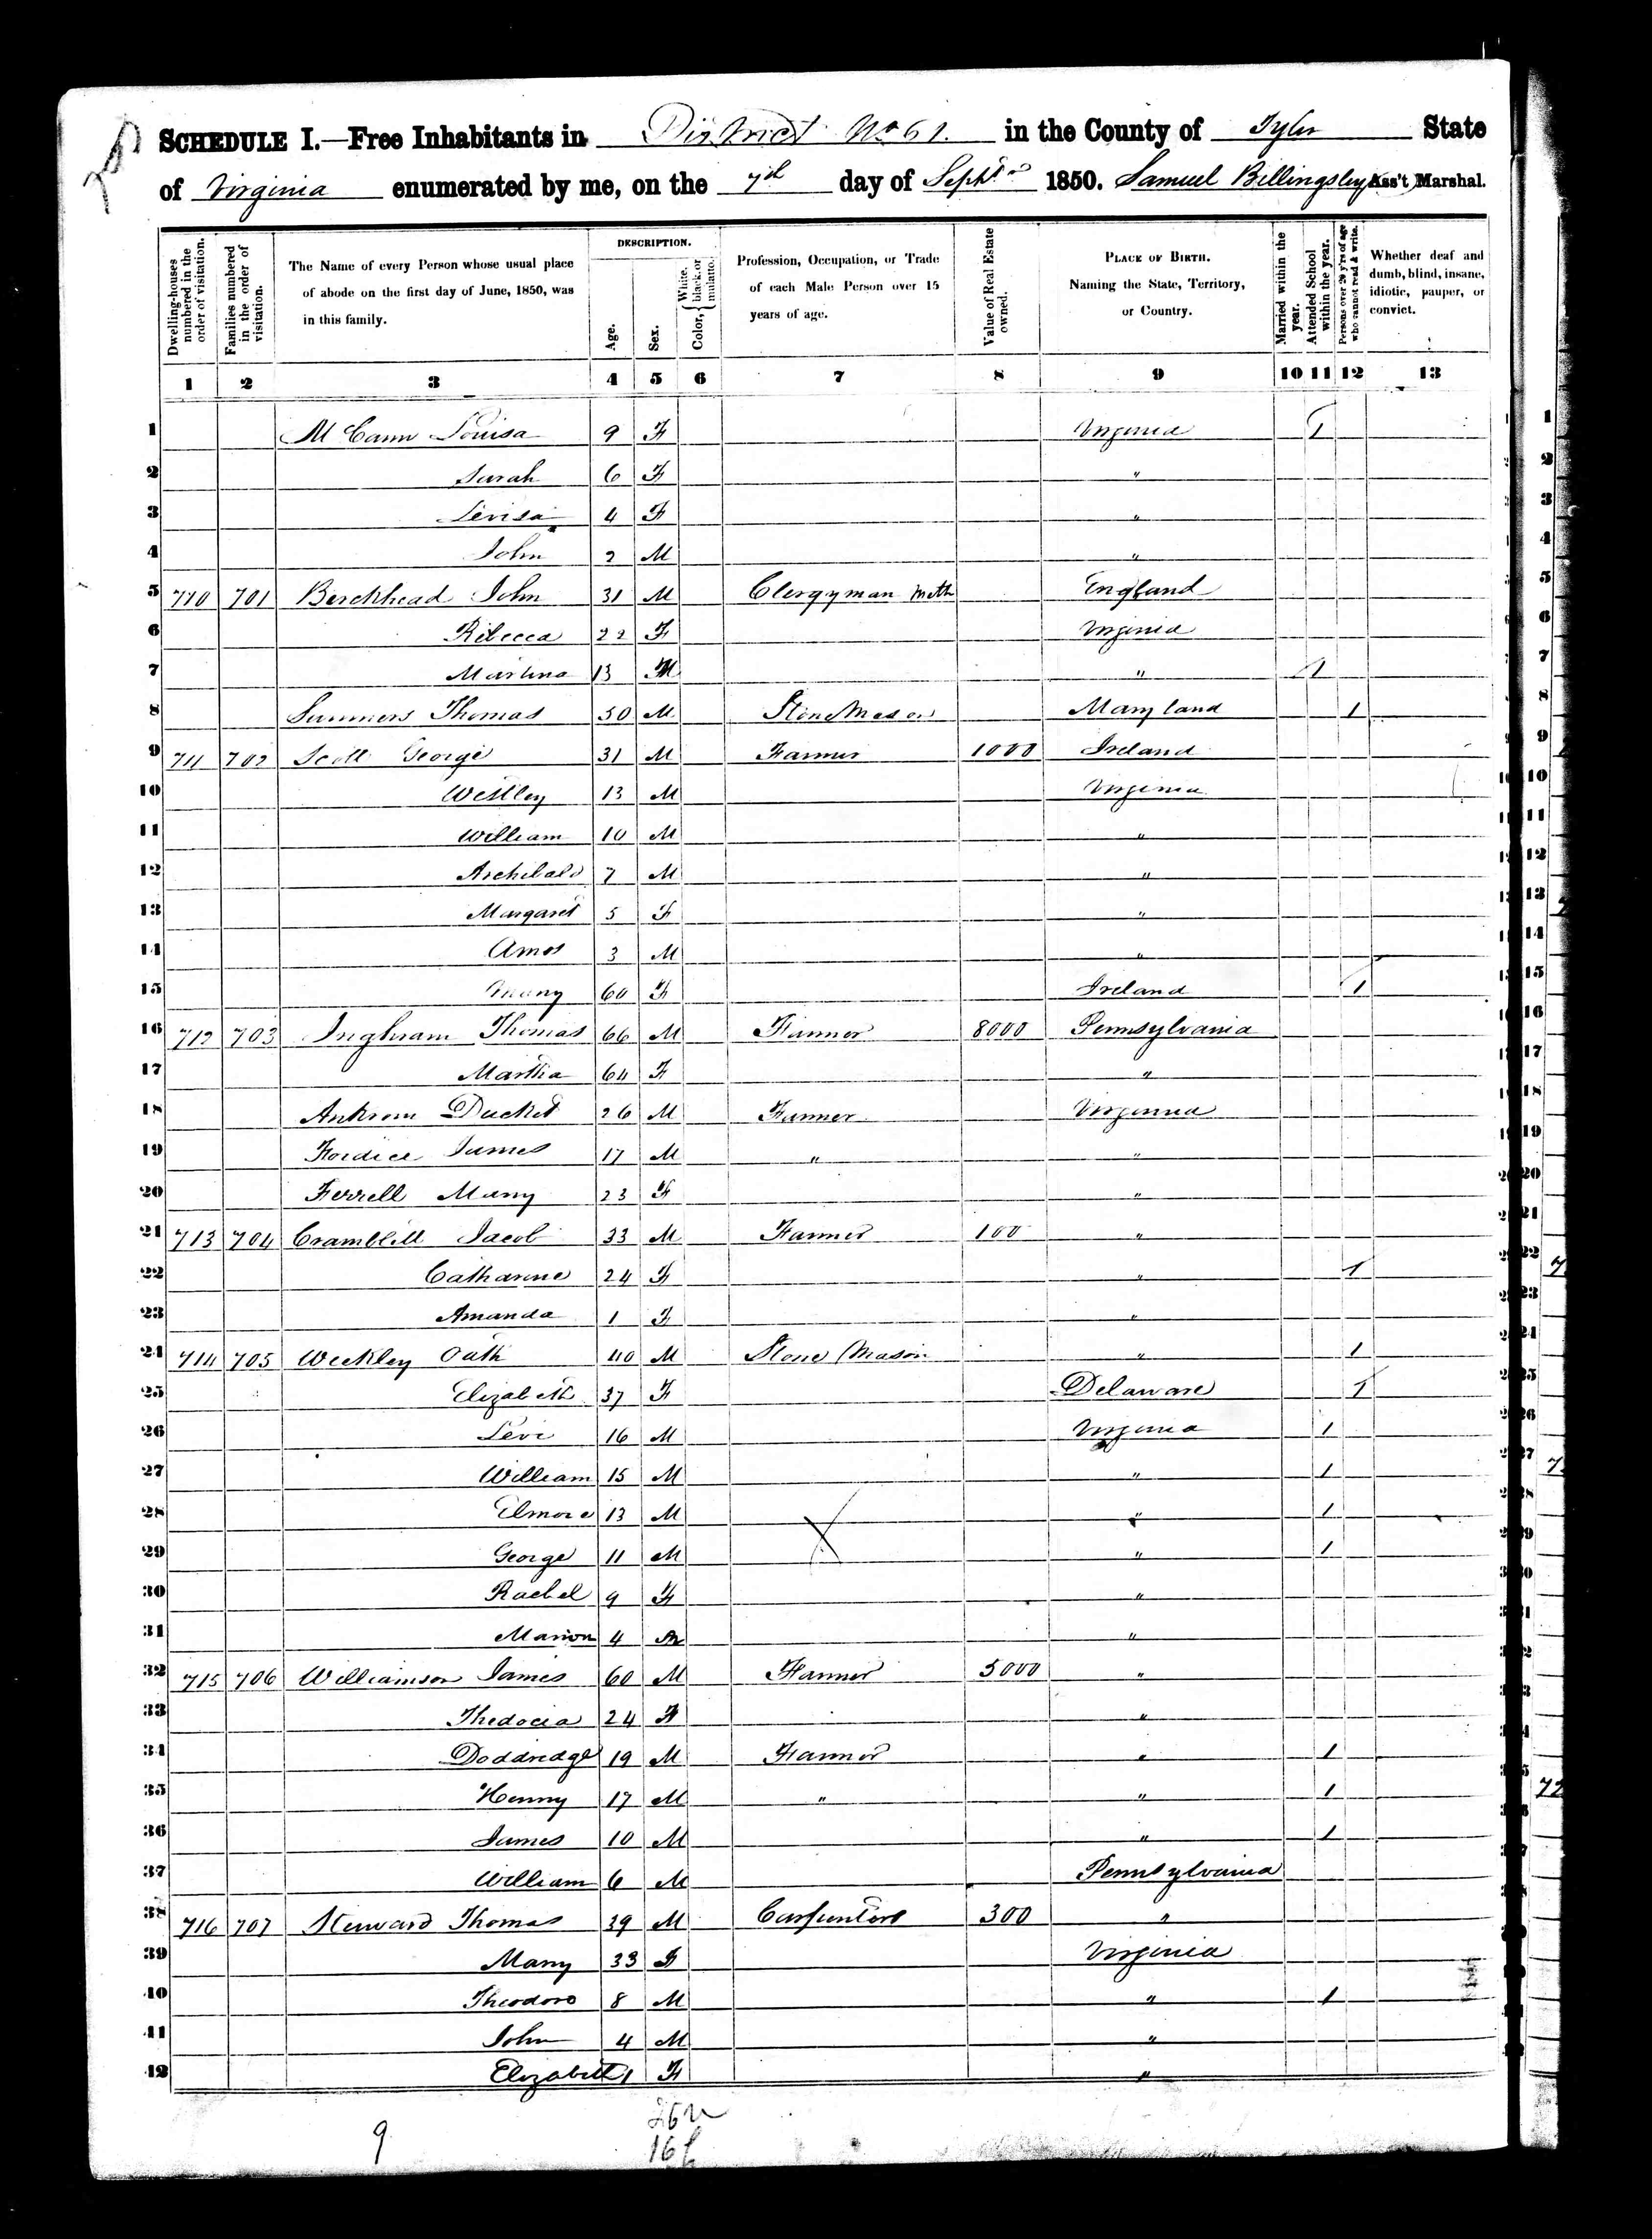 SCHEDULE I.—Free Inhabitants in District No 61. in the County of Tyler State
of Virginia enumerated by me, on the 7th day of Septr 1850. Samuel Billingsley Ass't Marshal.
Dwelling-houses numbered in the order of visitation.
Families numbered in the order of visitation.
The Name of every Person whose usual place of abode on the first day of June, 1850, was in this family.
DESCRIPTION.
Age.
Sex.
Color, { White, black, or mulatto.
Profession, Occupation, or Trade of each Male Person over 15 years of age.
Value of Real Estate owned.
PLACE OF BIRTH. Naming the State, Territory, or Country.
Married within the year.
Attended School within the year.
Persons over 20 y'rs of age who cannot read & write.
Whether deaf and dumb, blind, insane, idiotic, pauper, or convict.
1 2 3 4 5 6 7 8 9 10 11 12 13
1 McCann Louisa 9 F Virginia 1
2 Sarah 6 F "
3 Levisa 4 F "
4 John 2 M "
5 710 701 Berchhead John 31 M Clergyman Meth England
6 Rebecca 22 F Virginia
7 13 M " 1
8 Summers Thomas 50 M Stone Mason Maryland 1
9 711 702 Scott George 31 M Farmer 1000 Ireland
10 Westley 13 M Virginia
11 William 10 M "
12 Archibald 7 M "
13 Margaret 5 F "
14 Amos 3 M "
15 Mary 60 F Ireland 1
16 712 703 Inghram Thomas 66 M Farmer 8000 Pennsylvania
17 Martha 64 F "
18 Ankrom Ducket 26 M Farmer Virginia
19 Fordice James 17 M " "
20 Ferrell Mary 23 F "
21 713 704 Cramblett Jacob 33 M Farmer 100 "
22 Catharine 24 F " 1
23 Amanda 1 F "
24 714 705 Weekley Oath 40 M Stone Mason " 1
25 Elizabeth 37 F Delaware 1
26 Levi 16 M Virginia 1
27 William 15 M " 1
28 Elmore 13 M " 1
29 George 11 M " 1
30 Rachel 9 F "
31 Marion 4 M "
32 715 706 Williamson James 60 M Farmer 5000 "
33 Thedocia 24 F "
34 Doddridge 19 M Farmer " 1
35 Henry 17 M " " 1
36 James 10 M " 1
37 William 6 M Pennsylvania
38 716 707 Steward Thomas 39 M Carpenter 300 "
39 Mary 33 F Virginia
40 Theodore 8 M " 1
41 John 4 M "
42 Elizabeth 1 F "
9
26
16